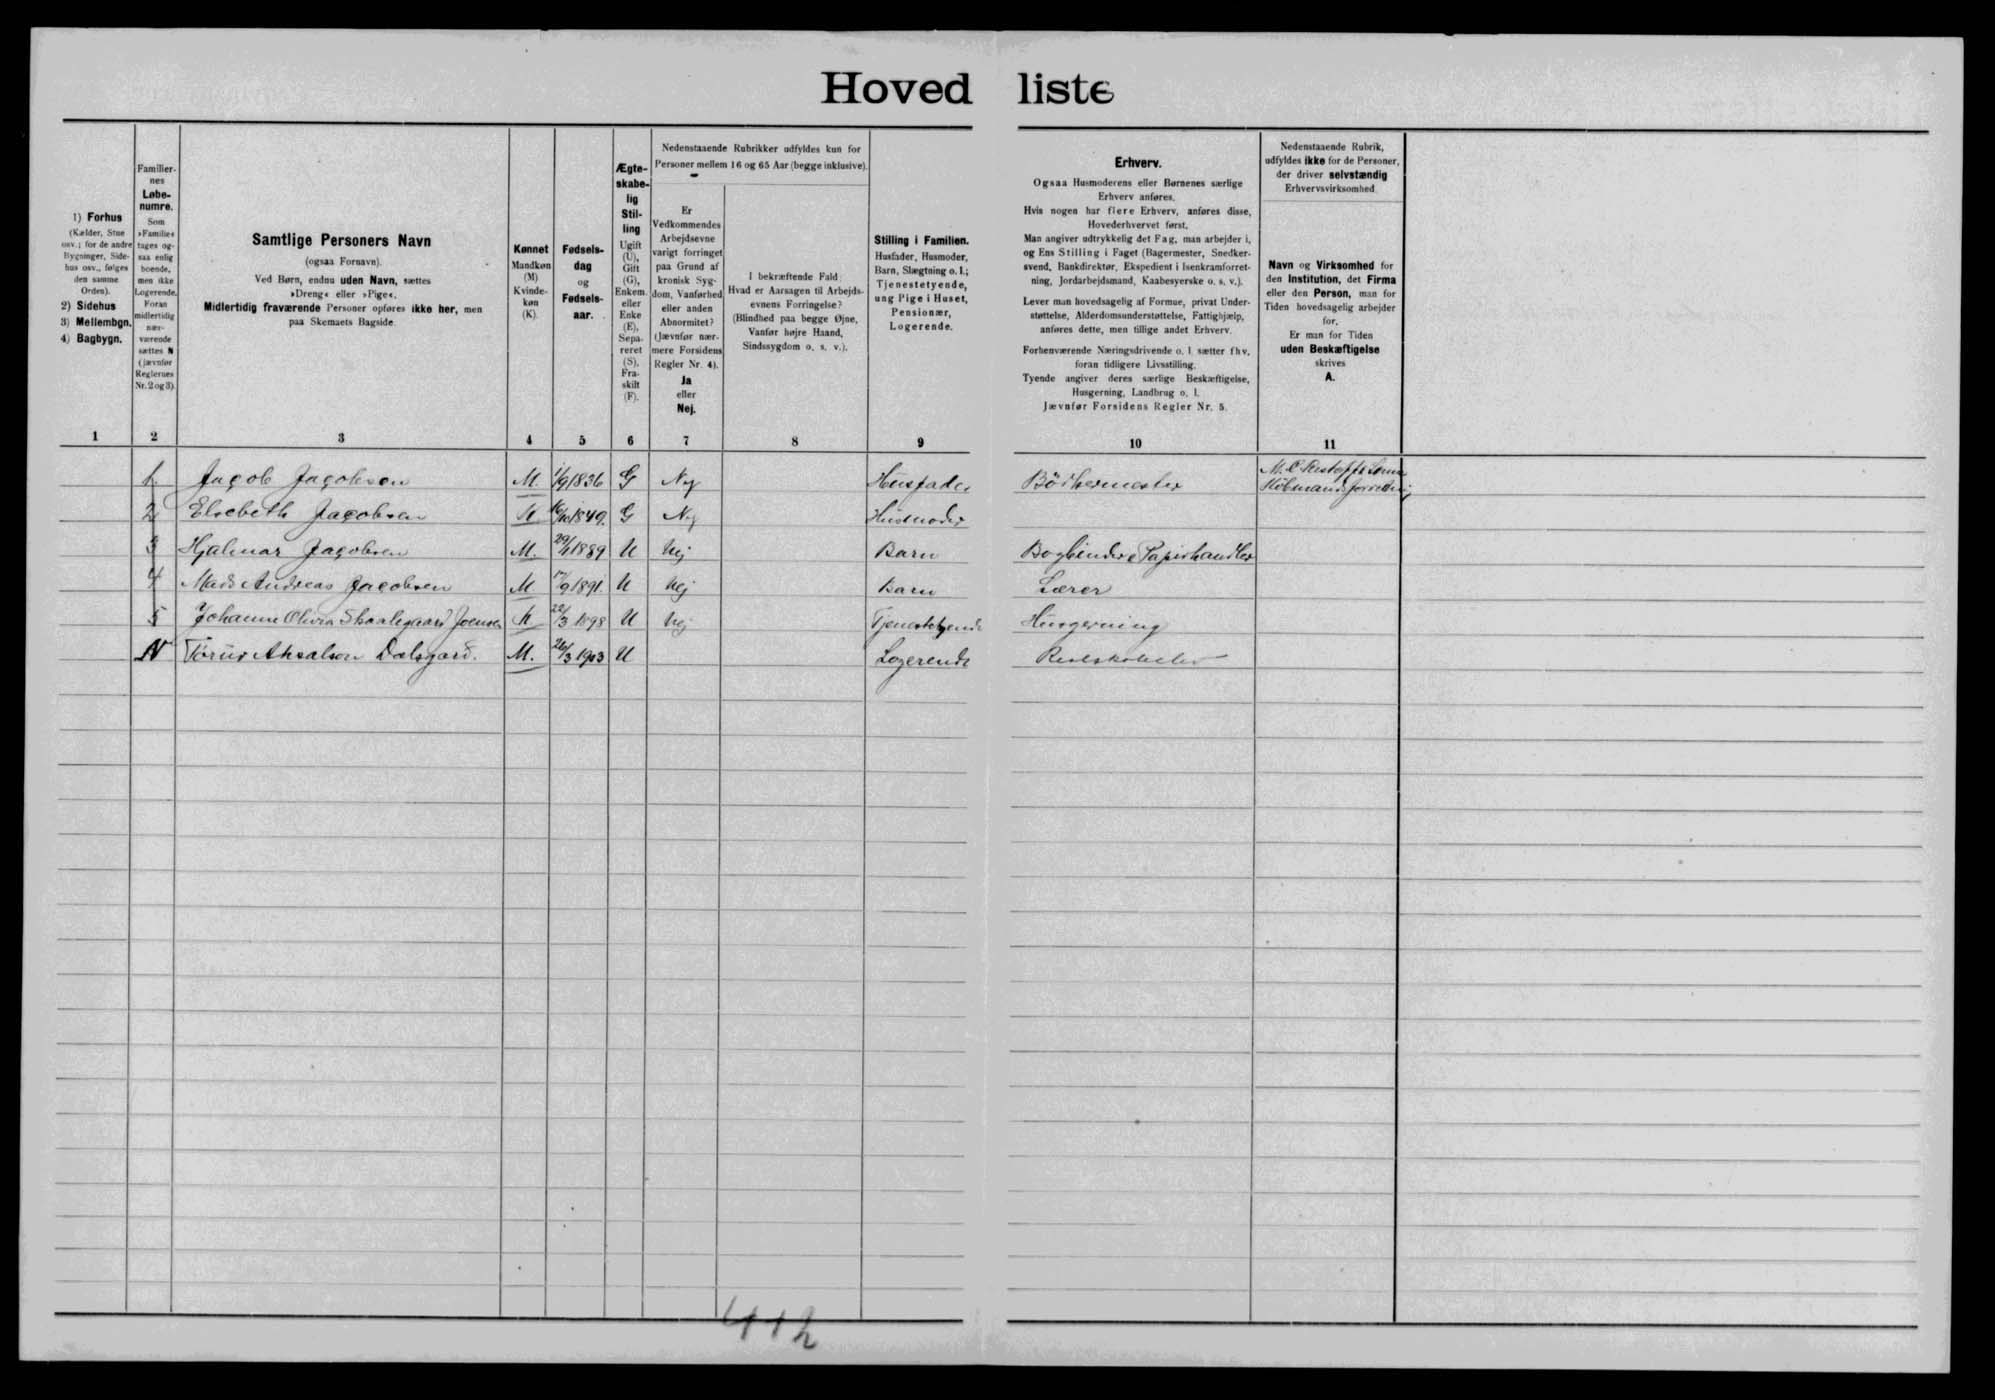 Hovedliste
1) Forhus
(Kælder, Stue
osv.; for de andre
Bygninger, Side-
hus osv., følges
den samme
Orden).
2) Sidehus
3) Mellembgn.
4) Bagbygn.
Familier-
nes
Løbe-
numre.
Som
»Familie«
tages og-
saa enlig
boende,
men ikke
Logerende.
Foran
midlertidig
nær-
værende
sættes N
(jævnfør
Reglernes
Nr. 2 og 3).
Samtlige Personers Navn
(ogsaa Fornavn).
Ved Børn, endnu uden Navn, sættes
»Dreng« eller »Pige«.
Midlertidig fraværende Personer opføres ikke her, men
paa Skemaets Bagside.
Kønnet
Mandkøn
(M)
Kvinde-
køn
(K).
Fødsels-
dag
og
Fødsels-
aar.
Ægte-
skabe-
lig
Stil-
ling
Ugift
(U),
Gift
(G),
Enkem.
eller
Enke
(E),
Sepa-
reret
(S),
Fra-
skilt
(F).
Nedenstaaende Rubrikker udfyldes kun for
Personer mellem 16 og 65 Aar (begge inklusive).
Er
Vedkommendes
Arbejdsevne
varigt forringet
paa Grund af
kronisk Syg-
dom, Vanførhed
eller anden
Abnormitet?
(Jævnfør nær-
mere Forsidens
Regler Nr. 4).
Ja
eller
Nej.
I bekræftende Fald:
Hvad er Aarsagen til Arbejds-
evnens Forringelse?
(Blindhed paa begge Øjne,
Vanfør højre Haand,
Sindssygdom o. s. v.).
Stilling i Familien.
Husfader, Husmoder,
Barn, Slægtning o. l.;
Tjenestetyende,
ung Pige i Huset,
Pensionær,
Logerende.
Erhverv.
Ogsaa Husmoderens eller Børnenes særlige
Erhverv anføres.
Hvis nogen har flere Erhverv, anføres disse,
Hovederhvervet først.
Man angiver udtrykkelig det Fag, man arbejder i,
og Ens Stilling i Faget (Bagermester, Snedker-
svend, Bankdirektør, Ekspedient i Isenkramforret-
ning, Jordarbejdsmand, Kaabesyerske o. s. v.).
Lever man hovedsagelig af Formue, privat Under-
støttelse, Alderdomsunderstøttelse, Fattighjælp,
anføres dette, men tillige andet Erhverv.
Forhenværende Næringsdrivende o. l. sætter fhv.
foran tidligere Livsstilling.
Tyende angiver deres særlige Beskæftigelse,
Husgerning, Landbrug o. l.
Jævnfør Forsidens Regler Nr. 5.
Nedenstaaende Rubrik,
udfyldes ikke for de Personer,
der driver selvstændig
Erhvervsvirksomhed.
Navn og Virksomhed for
den Institution, det Firma
eller den Person, man for
Tiden hovedsagelig arbejder
for.
Er man for Tiden
uden Beskæftigelse
skrives
A.
1 2 3 4 5 6 7 8 9 10 11
1 Jacob Jacobsen M. 1/9 1836 G Nej Husfader Bödkermester
2 Elsebeth Jacobsen K 1849. G Nej Husmoder
3 Hjalmar Jacobsen M. 1889 U Nej Barn Bogbinder & Papirhandler
4 Mads Andreas Jacobsen M. 17/9 1891. U Nej Barn Lærer
5 Johanne Olivia Skaalegaard Joensen K 22/3 1898 U Nej Tjenestetyende Husgerning
N Dalsgard. M. 26/3 1903 U Logerende Realskoleelev
412